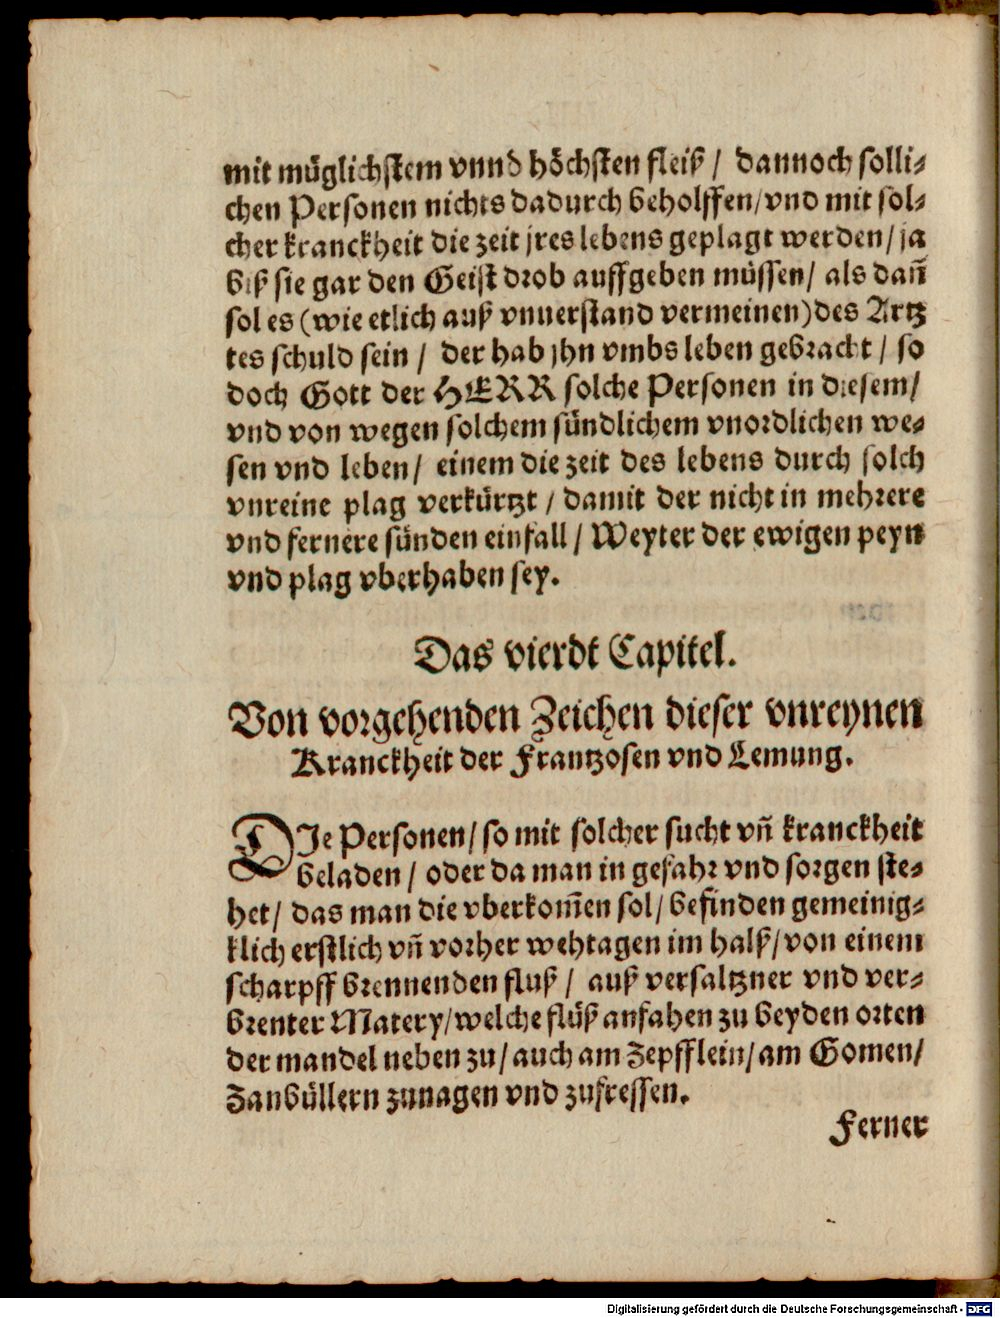 mit müglichstem vnnd höchsten fleiß / dannoch solli⸗
chen Personen nichts dadurch beholffen/vnd mit sol⸗
cher kranckheit die zeit jres lebens geplagt werden/ ja
biß sie gar den Geist drob auffgeben müssen/ als dañ
sol es (wie etlich auß vnuerstand vermeinen) des Artz
tes schuld sein / der hab jhn vmbs leben gebracht / so
doch Gott der HERR solche Personen in diesem/
vnd von wegen solchem sündlichem vnordlichen we⸗
sen vnd leben/ einem die zeit des lebens durch solch
vnreine plag verkürtzt / damit der nicht in mehrere
vnd fernere sünden einfall / Weyter der ewigen peyn
vnd plag vberhaben sey.
Das vierdt Capitel.
Von vorgehenden Zeichen dieser vnreynen
Kranckheit der Frantzosen vnd Lemung.
DIe Personen/ so mit solcher sucht vñ kranckheit
beladen / oder da man in gefahr vnd sorgen ste⸗
het/ das man die vberkom̃en sol/ befinden gemeinig⸗
klich erstlich vñ vorher wehtagen im halß/ von einem
scharpff brennenden fluß / auß versaltzner vnd ver⸗
brenter Matery/welche flüß anfahen zu beyden orten
der mandel neben zu/ auch am Zepfflein/ am Gomen/
Zanbüllern zunagen vnd zufressen.
Ferner
Digitalisierung gefördert durch die Deutsche Forschungsgemeinschaft - DFG